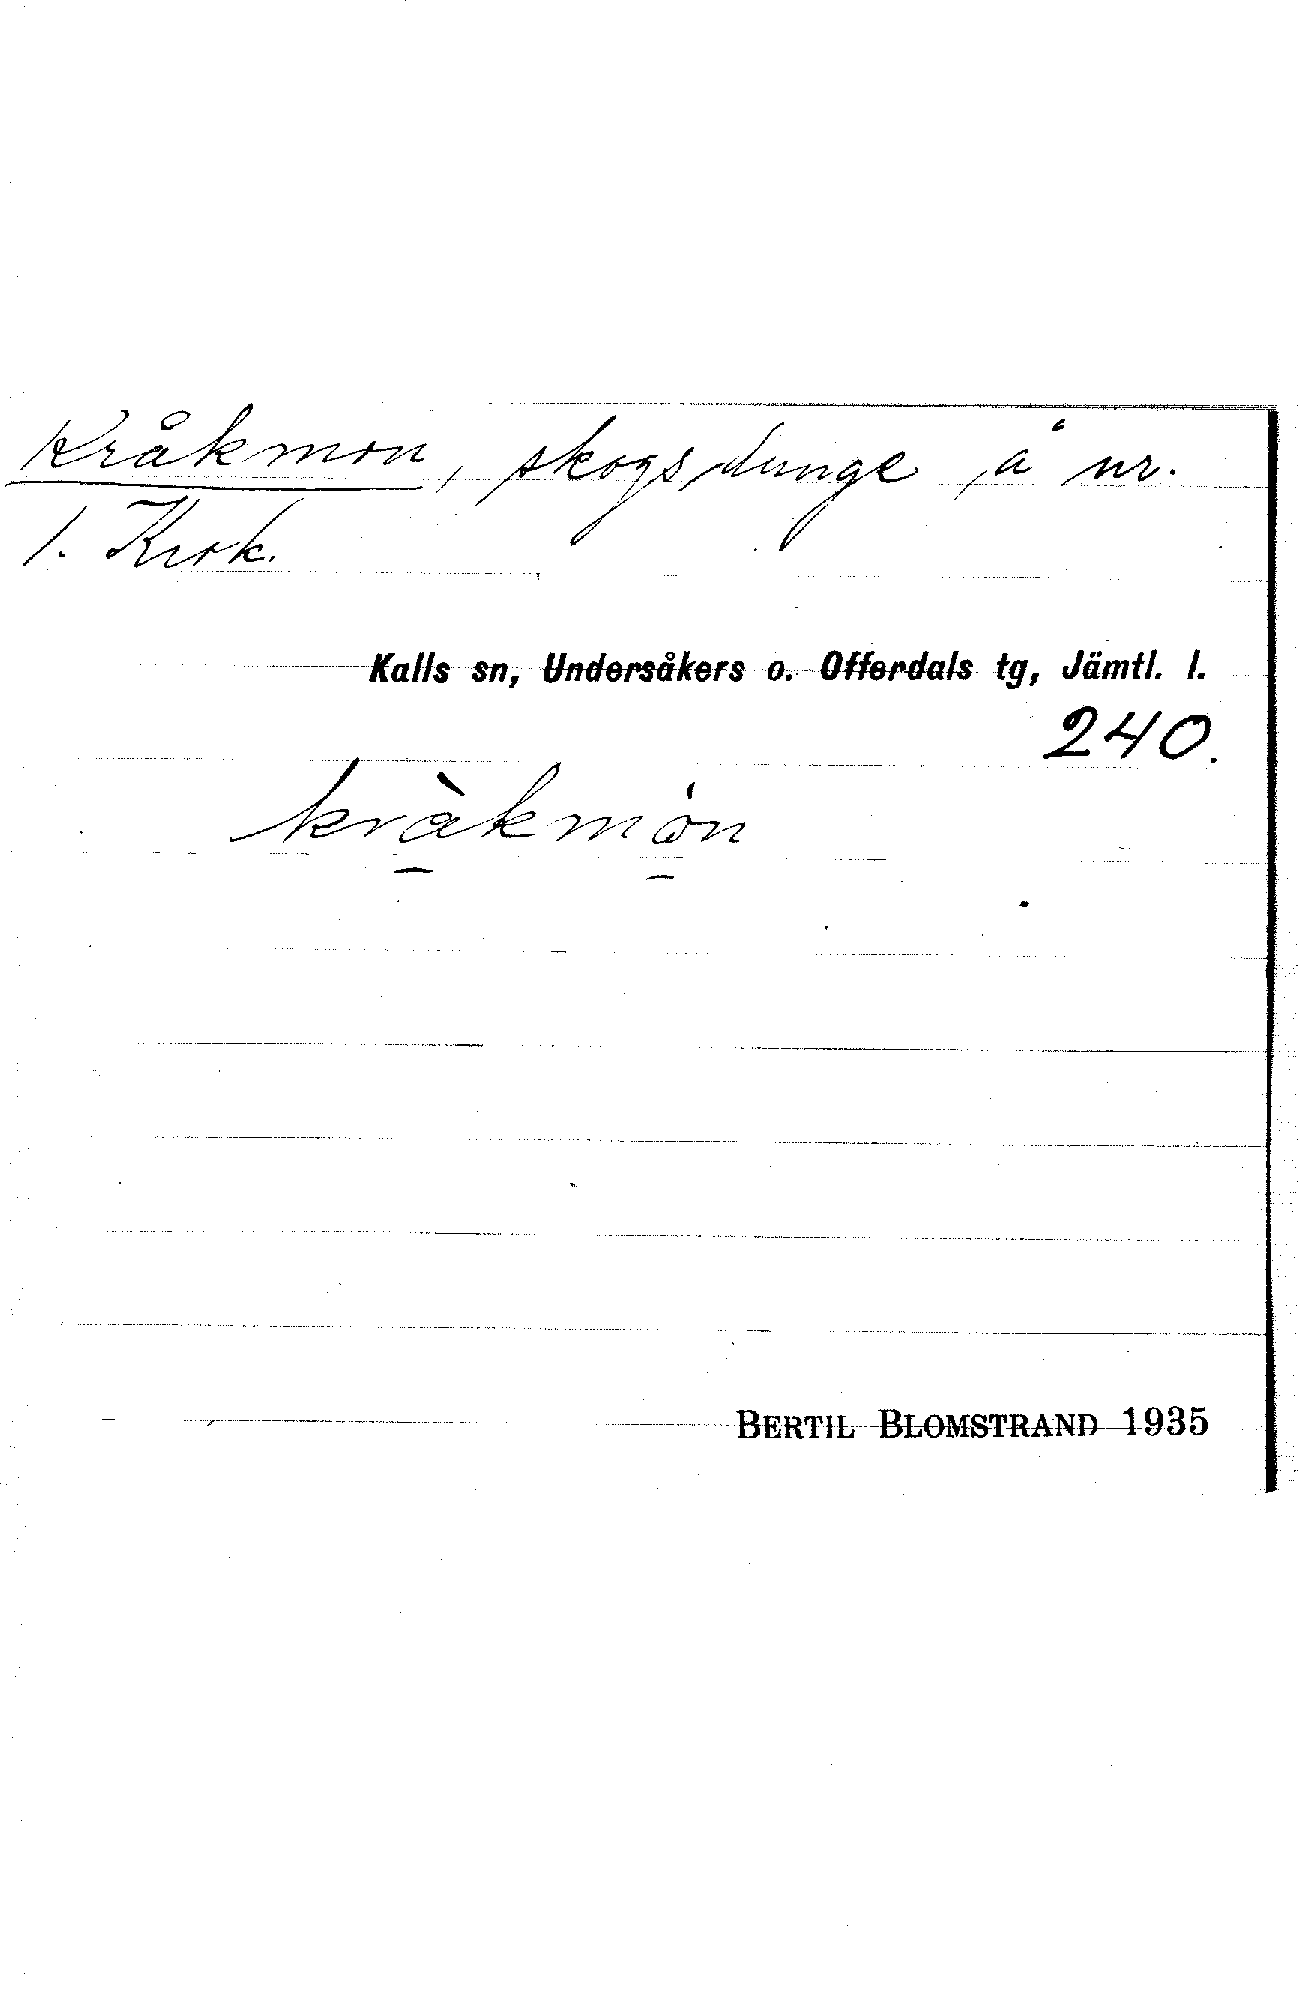 Kråkmon, skogsdunge å nr.
1. Krok.
Kalls sn, Undersåkers o. Offerdals tg, Jämtl. l.
240.
kràkmòn
BERTIL BLOMSTRAND 1935